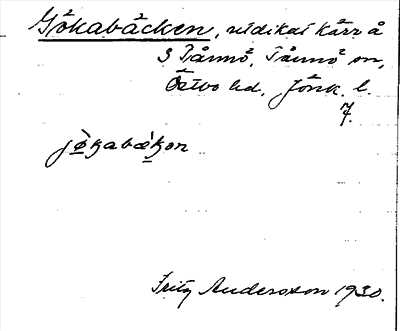 Gökabäcken, utdikat kärr å
3 Tånnö, Tånnö sn,
Östbo hd, Jönk. l.
7.
jø̀kabæ̀kən
Fritz Andersson 1930.